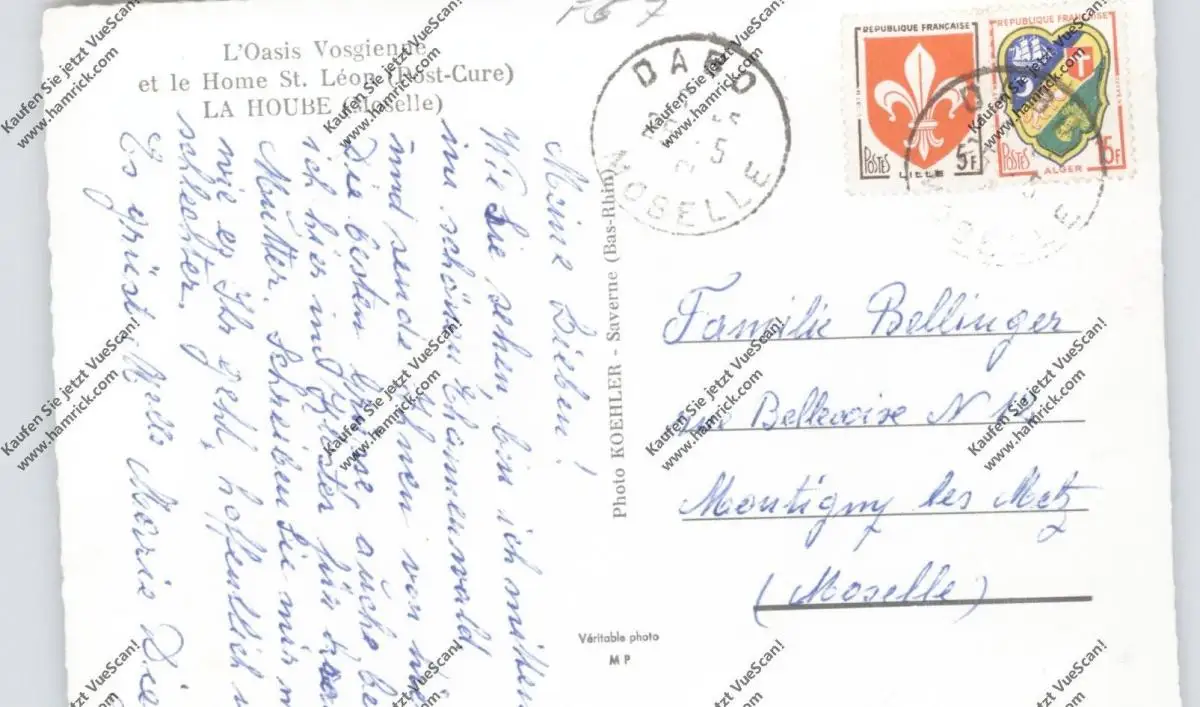 F6 7
L'Oasis Vosgienne
et le Home St. Léon (Post-Cure)
LA HOUBE (Moselle)
DABO
MOSELLE
REPUBLIQUE FRANÇAISE
POSTES
5F
LILLE
REPUBLIQUE FRANÇAISE
POSTES
15F
ALGER
Meine Lieben!
Wie Sie sehen, bin ich mitten
im schönen Thannenwald
und sende Ihnen von hier
Die besten Grüsse, auch be
ich hier im Kloster für
Mutter. Schreiben Sie mir
wie es Ihr geht, hoffentlich
schlechter.
Es grüsst Marie
Photo KOEHLER - Saverne (Bas-Rhin)
Familie Bellinger
Bellevoise N
Montigny les Metz
(Moselle)
Véritable photo
M P
Kaufen Sie jetzt VueScan!
www.hamrick.com